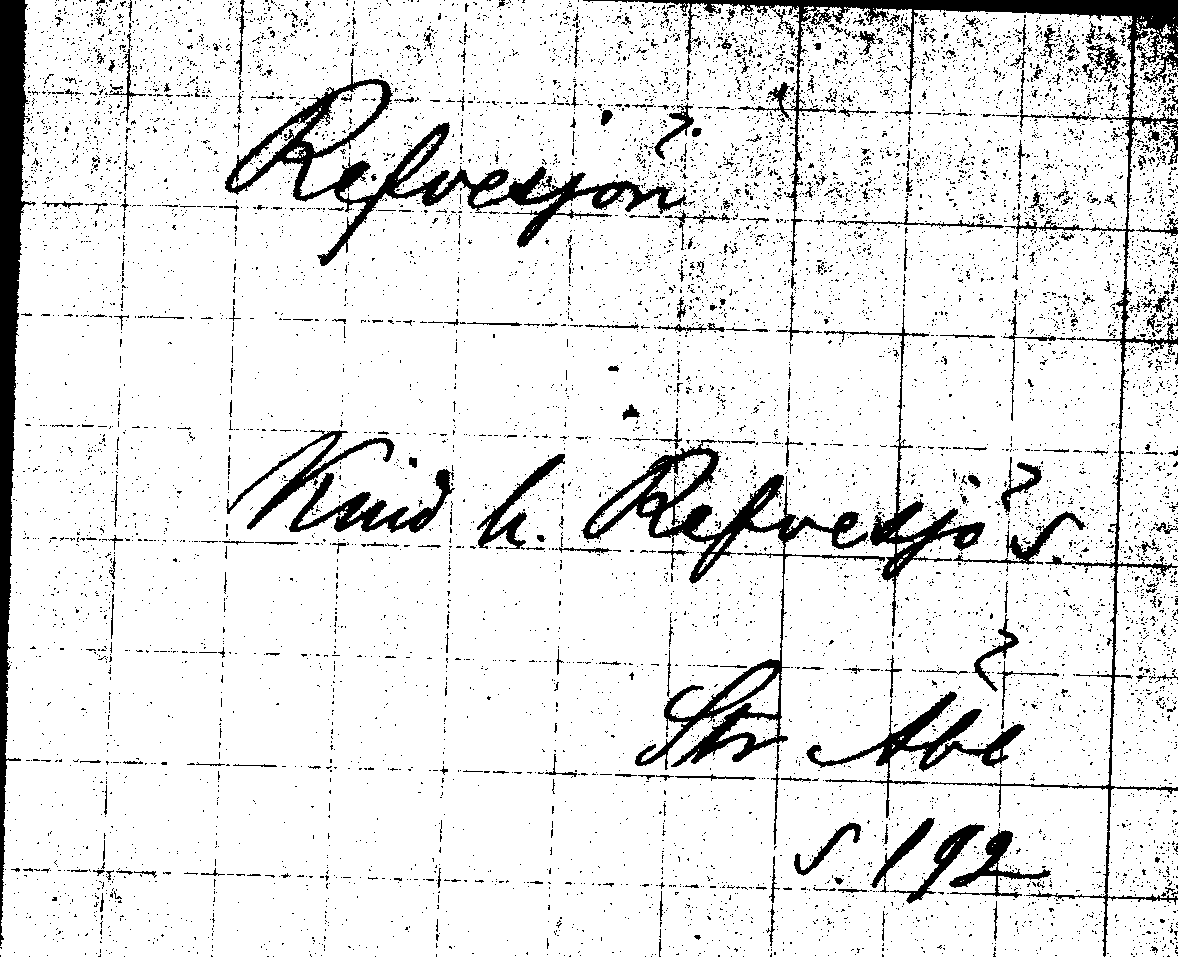 Refvesjön
Knud h. Refvesjö s.
Str Abe
s. 192